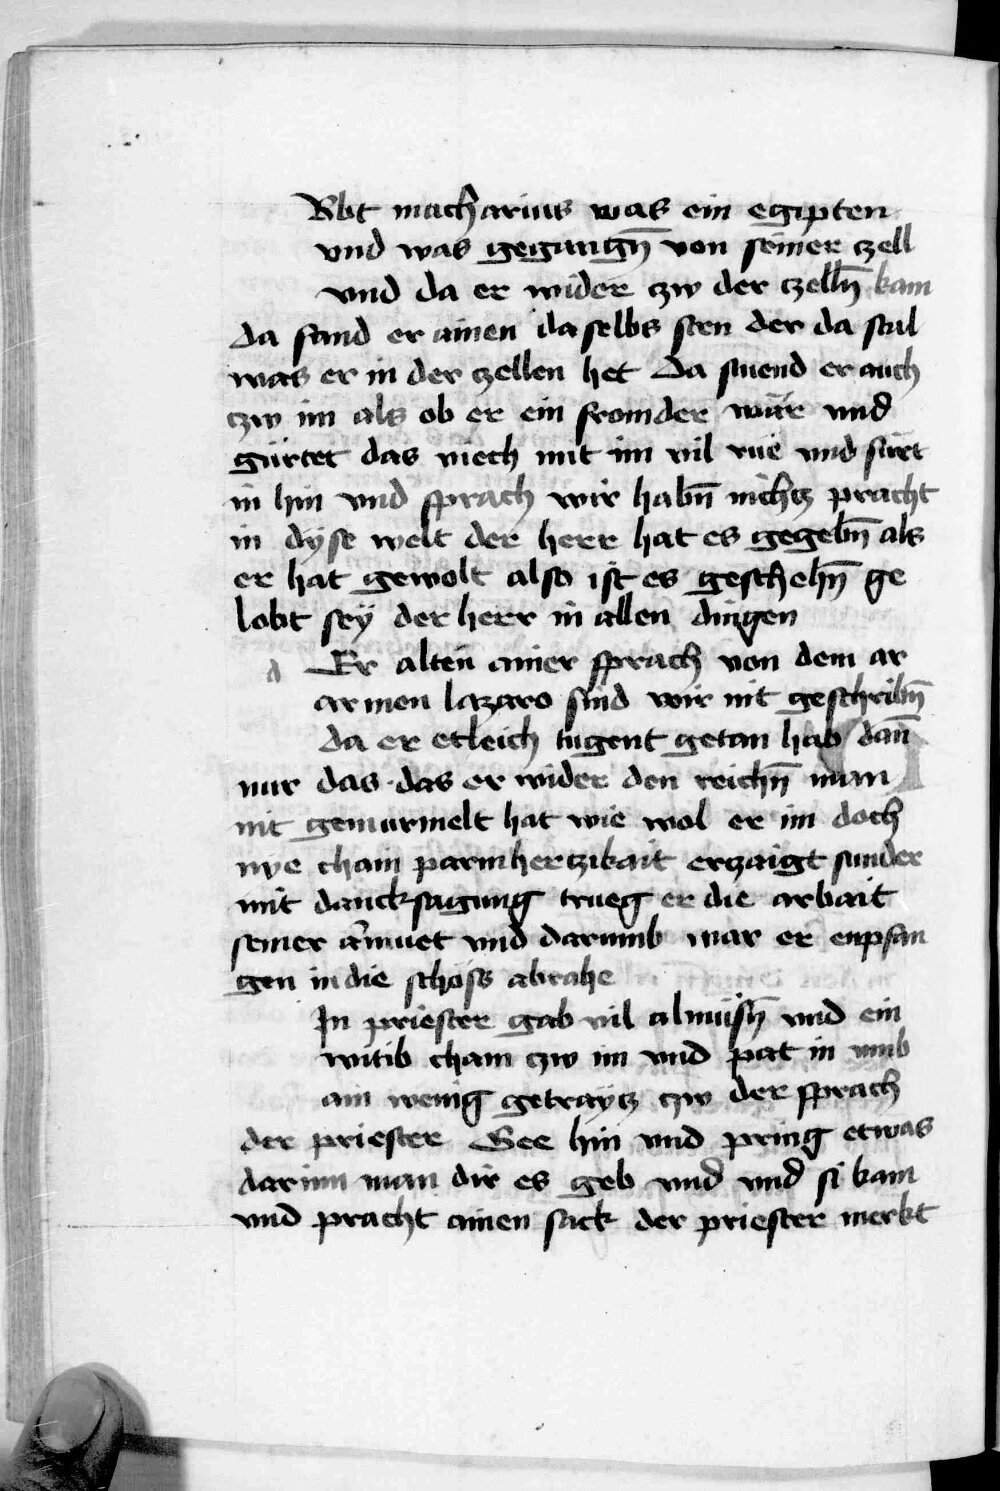 Abt macharius was ein egipten
vnd was gegangn̄ von seiner czell
vnd da er wider czw der czelln̄ kam
da fand er ainen da selbs sten der da stal
was er in der czellen het Da stuend er auch
czw im als ob er ein fromder wär vnd
gürtet das viech mit im vil rue vnd fürt
in hin vnd sprach wir habn̄ nichtz pracht
in dyse welt der herr hat es gegebn̄ als
er hat gewolt also ist es geschehn̄ ge
lobt sey der herr in allen dingen
d Er alten ainer sprach von dem ar
armen lazaro sind wir nit geschribn̄
da er etleich tugent getan hab dan̄
nur das das er wider den reichn̄ man
nit gemurmelt hat wie wol er im doch
nye cham parmherczikait erzaigt sunder
mit dancksagung trueg er die arbait
seiner armuet vnd darumb war er enpfan
gen in die schöss abrahe
In priester gab vil almüsn̄ vnd ein
witib cham czw im vnd pat in vmb
ain wenig getraytz czw der sprach
der priester Gee hin vnd pring etwas
darinn man dir es geb vnd vnd si kam
vnd pracht ainen sack der priester merkt